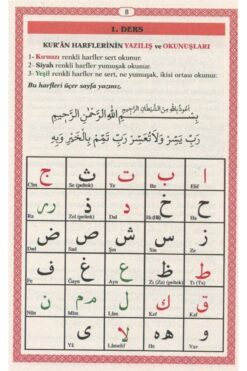 8
1. DERS
KUR'ÂN HARFLERİNİN YAZILIŞ ve OKUNUŞLARI
1- Kırmızı renkli harfler sert okunur.
2- Siyah renkli harfler yumuşak okunur.
3- Yeşil renkli harfler ne sert, ne yumuşak, ikisi ortası okunur.
Bu harfleri üçer sayfa yazınız.
اَعُوذُ بِاللّٰهِ مِنَ الشَّيْطَانِ الرَّجِيمِ
بِسْمِ اللّٰهِ الرَّحْمٰنِ الرَّحِيمِ
رَبِّ يَسِّرْ وَلَا تُعَسِّرْ رَبِّ تَمِّمْ بِالْخَيْرِ وَبِهِ
ا ب ت ث ج
Elif Be Te Se (peltek) Cîm
ح خ د ذ ر
Ha Dal Zel (peltek) Ra
ز س ش ص ض
Ze Sin Şın Sad Dad
ط ظ ع غ ف
Tı Zı (Za) (peltek) Ayn Gayn Fe
ق ك ل م ن
Kaf Kef Lâm Mîm Nûn
و ه لا ى
Vav He Lâmelif Yâ